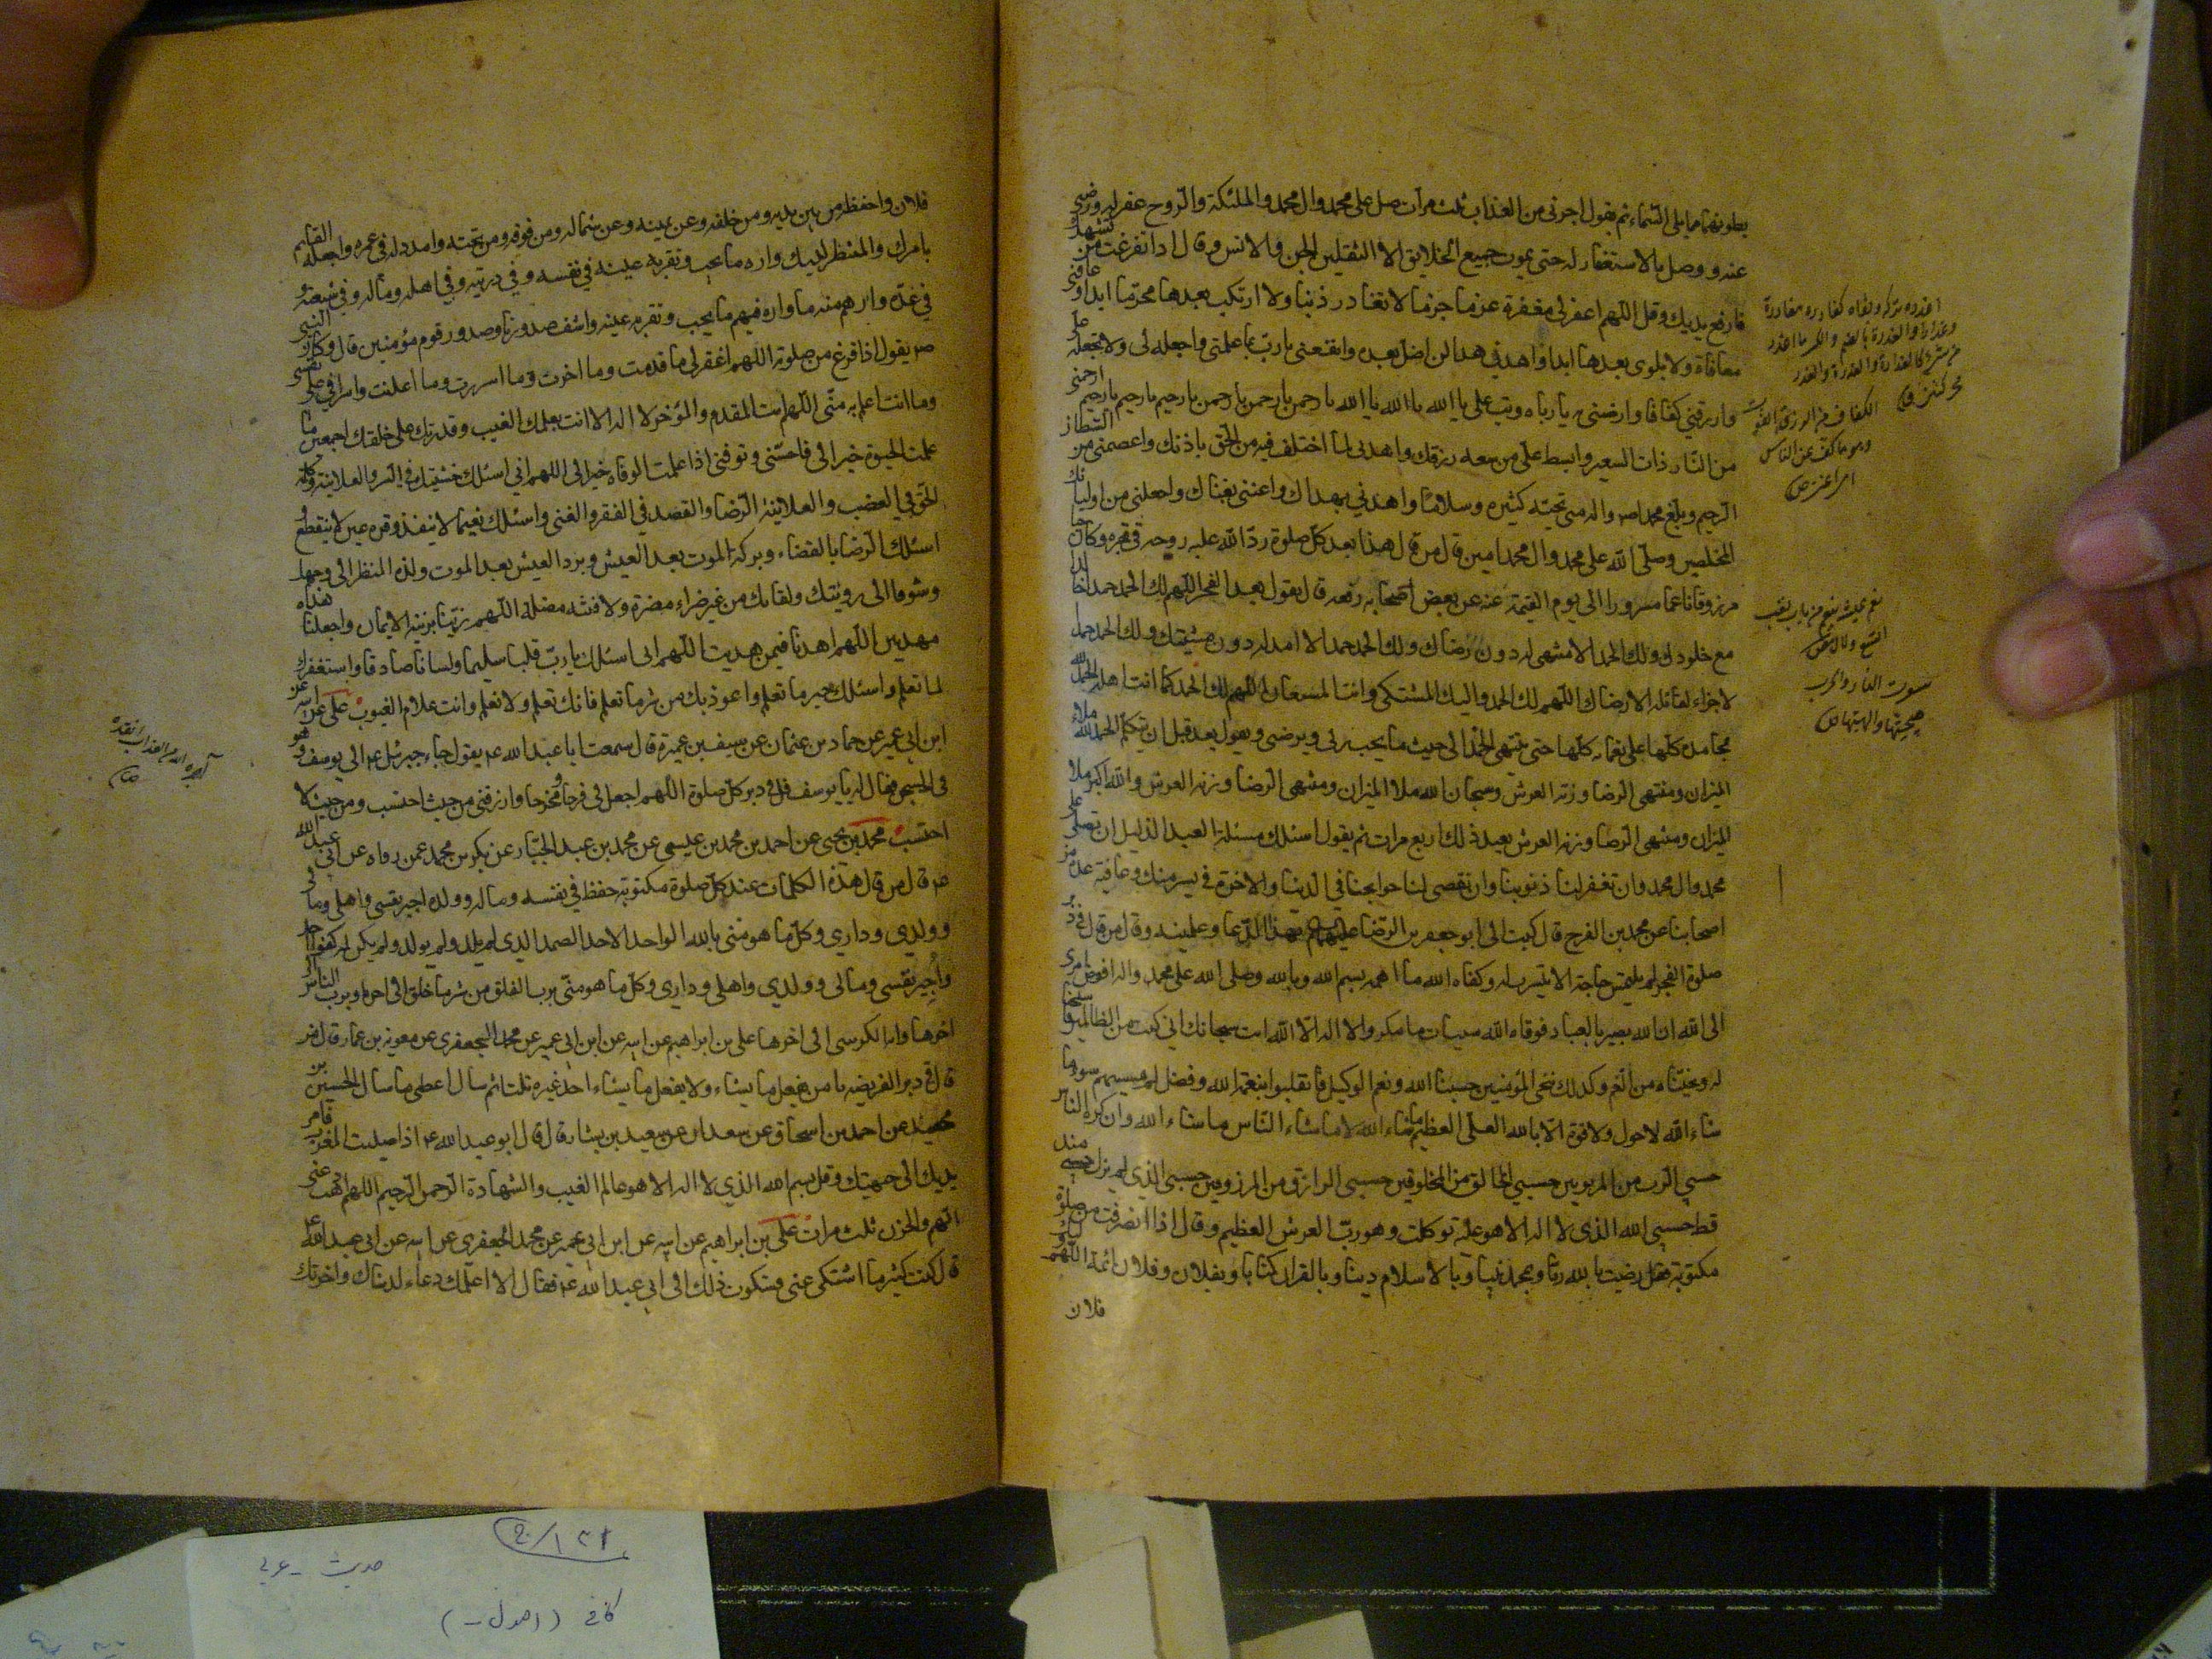 بطونهما مما يلى السماء ثم يقول اجرنى من العذاب ثلث مرات صل على محمد وال محمد والملئكة والروح غفر له ورضى
عنه ووصل بالاستغفار له حتى يموت جميع الخلايق الا الثقلين الجن والانس وقال اذا فرغت من تشهدك
فارفع يديك وقل اللهم اغفرلى مغفرة عزما جزما لا تغادر ذنبا ولا ارتكب بعدها محرما ابدا وعافنى
معافاة ولا بلوى بعدها ابدا واهدنى هدا لن اضل بعده وانفعنى يا رب بما علمتنى واجعله لى ولا تجعله على
وارزقنى كفافا وارضنى به يا رباه وتب على يا الله يا الله يا الله يا رحمن يا رحمن يا رحمن يا رحيم يا رحيم يا رحيم ارحمنى
من النار ذات السعير وابسط على من سعة رزقك واهدنى لما اختلف فيه من الحق باذنك واعصمنى من الشيطان
الرجيم وبلغ محمدا ص واله منى تحية كثيرة وسلاما واهدنى بهداك واغننى بغناك واجعلنى من اوليائك
المخلصين وصلى الله على محمد وال محمد امين قال من قال هذا بعد كل صلوة رد الله عليه روحه فى قبره وكان حيا
مرزوقا ناعما مسرورا الى يوم القيمة عنه عن بعض اصحابه رفعه قال يقول بعد الفجر اللهم لك الحمد حمدا خالدا
مع خلودك ولك الحمد حمدا لا منتهى له دون رضاك ولك الحمد حمدا لا امد له دون مشيتك ولك الحمد حمدا
لا جزاء لقائله الا رضاك اللهم لك الحمد واليك المشتكى وانت المستعان اللهم لك الحمد كما انت اهله الحمد لله
بمحامده كلها على نعمائه كلها حتى ينتهى الحمد الى حيث ما يحب ربى ويرضى ويقول بعد قبل ان يتكلم الحمد لله ملاء
الميزان ومنتهى الرضا وزنة العرش وسبحان الله ملا الميزان ومنتهى الرضا وزنة العرش والله اكبر ملا
الميزان ومنتهى الرضا وزنة العرش يعيد ذلك اربع مرات ثم يقول اسئلك مسئلة العبد الذليل ان تصلى على
محمد وال محمد وان تغفر لنا ذنوبنا وان تقضى لنا حوايجنا فى الدنيا والاخرة فى يسر منك وعافية عدة من
اصحابنا عن محمد بن الفرج قال كتب الى ابو جعفر بن الرضا عليهما بهذا الدعا وعلمنيه وقال من قال فى دبر
صلوة الفجر لم يلتمس حاجة الا تيسرت له وكفاه الله ما اهمه بسم الله وبالله وصلى الله على محمد واله افوض امرى
الى الله ان الله بصير بالعباد فوقاه الله سيئات ما مكروا لا اله الا انت سبحانك انى كنت من الظالمين فاستجبنا
له ونجيناه من الغم وكذلك ننجى المؤمنين حسبنا الله ونعم الوكيل فانقلبوا بنعمة الله وفضل لم يمسسهم سوء ما
شاء الله لا حول ولا قوة الا بالله العلى العظيم ما شاء الله لا ما شاء الناس ما شاء الله وان كره الناس
حسبى الرب من المربوبين حسبى الخالق من المخلوقين حسبى الرازق من المرزوقين حسبى الذى لم يزل حسبى منذ
قط حسبى الله الذى لا اله الا هو عليه توكلت وهو رب العرش العظيم وقال اذا انصرفت من صلوة
مكتوبة فقل رضيت بالله ربا وبمحمد نبيا وبالاسلام دينا وبالقران كتابا وبفلان وفلان ائمة اللهم
فلان
الكفاف من الرزق القوت
وهو ما كف عن الناس
فلان واحفظه من بين يديه ومن خلفه وعن يمينه وعن شماله ومن فوقه ومن تحته وامدد له فى عمره واجعله القايم
بامرك والمنتظر لدينك واره ما يحب وتقر به عينه فى نفسه وفى ذريته وفى اهله وماله وفى شيعته و
فى عدوه وارهم منه ما واره فيهم ما يحب وتقر به عينه واشف صدورنا وصدور قوم مؤمنين قال وكان النبى
ص يقول اذا فرغ من صلوته اللهم اغفر لى ما قدمت وما اخرت وما اسررت وما اعلنت واسرافى على نفسى
وما انت اعلم به منى اللهم انت المقدم والمؤخر لا اله الا انت بعلمك الغيب وقدرتك على خلقك اجمعين ما
علمت الحيوة خيرا لى فاحينى وتوفنى اذا علمت الوفاة خيرا لى اللهم انى اسئلك خشيتك فى السر والعلانية وكلمة
الحق فى الغضب والعلانية الرضا والقصد فى الفقر والغنى واسئلك نعيما لا ينفد وقرة عين لا ينقطع و
اسئلك الرضا بالقضاء وبركة الموت بعد العيش وبرد العيش بعد الموت ولذة المنظر الى وجهك
وشوقا الى رويتك ولقائك من غير ضراء مضرة ولا فتنة مضلة اللهم زينا بزينة الايمان واجعلنا هداة
مهديين اللهم اهدنا فيمن هديت اللهم انى اسئلك يا رب قلبا سليما ولسانا صادقا واستغفرك
لما تعلم واسئلك خير ما تعلم واعوذ بك من شر ما تعلم فانك تعلم ولا نعلم وانت علام الغيوب على عن ابيه عن
ابن ابى عمير عن حماد بن عثمان عن سيف بن عميرة قال سمعت ابا عبد الله ع يقول جاء جبرئيل ع الى يوسف وهو
فى السجن فقال له يا يوسف قل فى دبر كل صلوة اللهم اجعل لى فرجا ومخرجا وارزقنى من حيث احتسب ومن حيث لا
احتسب محمد بن يحيى عن احمد بن محمد بن عيسى عن محمد بن عبد الجبار عن بكر بن محمد عمن رواه عن ابى عبد الله
ع قال من قال هذه الكلمات عند كل صلوة مكتوبة حفظ فى نفسه وماله وولده اجير نفسى واهلى ومالى
وولدى ودارى وكل ما هو منى بالله الواحد الاحد الصمد الذى لم يلد ولم يولد ولم يكن له كفوا احد
واجير نفسى ومالى وولدى واهلى ودارى وكل ما هو منى برب الفلق من شر ما خلق الى اخرها وبرب الناس الى
اخرها واية الكرسى الى اخرها على بن ابراهيم عن ابيه عن ابن ابى عمير عن محمد الجعفرى عن معوية بن عمار قال من
قال فى دبر الفريضة يا من يفعل ما يشاء ولا يفعل ما يشاء احد غيره ثلثا ثم سال اعطى ما سال الحسين بن
محمد عن احمد بن اسحاق عن سعدان عن سعيد بن يسار قال قال ابو عبد الله ع اذا صليت المغرب فامر
يديك الى جبهتك وقل بسم الله الذى لا اله الا هو عالم الغيب والشهادة الرحمن الرحيم اللهم اذهب عنى
الهم والحزن ثلث مرات على بن ابراهيم عن ابيه عن ابن ابى عمير عن محمد الجعفرى عن ابيه عن ابى عبد الله ع
قال كنت كثير ما اشتكى عينى فشكوت ذلك الى ابى عبد الله ع فقال الا اعلمك دعاء لدنياك واخرتك
حديث - عربى
كافى (اصول -)